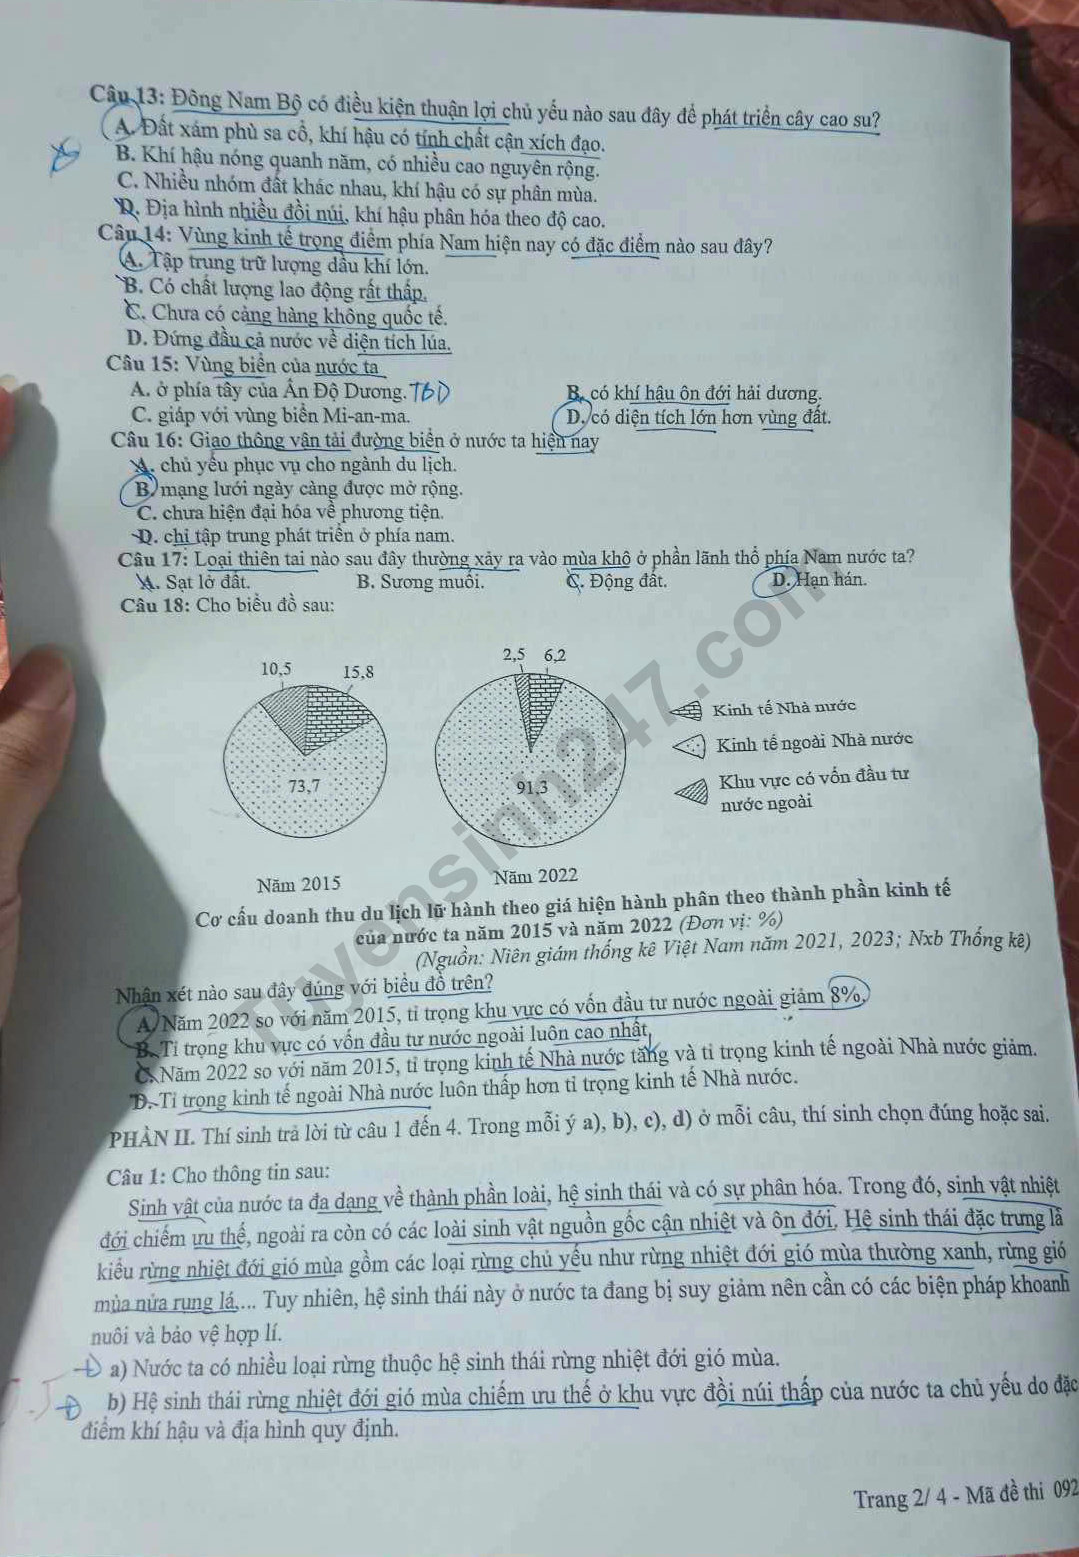 Câu 13: Đông Nam Bộ có điều kiện thuận lợi chủ yếu nào sau đây để phát triển cây cao su?
A. Đất xám phù sa cổ, khí hậu có tính chất cận xích đạo.
B. Khí hậu nóng quanh năm, có nhiều cao nguyên rộng.
C. Nhiều nhóm đất khác nhau, khí hậu có sự phân mùa.
D. Địa hình nhiều đồi núi, khí hậu phân hóa theo độ cao.
Câu 14: Vùng kinh tế trọng điểm phía Nam hiện nay có đặc điểm nào sau đây?
A. Tập trung trữ lượng dầu khí lớn.
B. Có chất lượng lao động rất thấp.
C. Chưa có cảng hàng không quốc tế.
D. Đứng đầu cả nước về diện tích lúa.
Câu 15: Vùng biển của nước ta
A. ở phía tây của Ấn Độ Dương. TBD B. có khí hậu ôn đới hải dương.
C. giáp với vùng biển Mi-an-ma. D. có diện tích lớn hơn vùng đất.
Câu 16: Giao thông vận tải đường biển ở nước ta hiện nay
A. chủ yếu phục vụ cho ngành du lịch.
B. mạng lưới ngày càng được mở rộng.
C. chưa hiện đại hóa về phương tiện.
D. chỉ tập trung phát triển ở phía nam.
Câu 17: Loại thiên tai nào sau đây thường xảy ra vào mùa khô ở phần lãnh thổ phía Nam nước ta?
A. Sạt lở đất. B. Sương muối. C. Động đất. D. Hạn hán.
Câu 18: Cho biểu đồ sau:
10,5 15,8 2,5 6,2
73,7 91,3
Kinh tế Nhà nước
Kinh tế ngoài Nhà nước
Khu vực có vốn đầu tư
nước ngoài
Năm 2015 Năm 2022
Cơ cấu doanh thu du lịch lữ hành theo giá hiện hành phân theo thành phần kinh tế
của nước ta năm 2015 và năm 2022 (Đơn vị: %)
(Nguồn: Niên giám thống kê Việt Nam năm 2021, 2023; Nxb Thống kê)
Nhận xét nào sau đây đúng với biểu đồ trên?
A. Năm 2022 so với năm 2015, tỉ trọng khu vực có vốn đầu tư nước ngoài giảm 8%.
B. Tỉ trọng khu vực có vốn đầu tư nước ngoài luôn cao nhất.
C. Năm 2022 so với năm 2015, tỉ trọng kinh tế Nhà nước tăng và tỉ trọng kinh tế ngoài Nhà nước giảm.
D. Tỉ trọng kinh tế ngoài Nhà nước luôn thấp hơn tỉ trọng kinh tế Nhà nước.
PHẦN II. Thí sinh trả lời từ câu 1 đến 4. Trong mỗi ý a), b), c), d) ở mỗi câu, thí sinh chọn đúng hoặc sai.
Câu 1: Cho thông tin sau:
Sinh vật của nước ta đa dạng về thành phần loài, hệ sinh thái và có sự phân hóa. Trong đó, sinh vật nhiệt
đới chiếm ưu thế, ngoài ra còn có các loài sinh vật nguồn gốc cận nhiệt và ôn đới. Hệ sinh thái đặc trưng là
kiểu rừng nhiệt đới gió mùa gồm các loại rừng chủ yếu như rừng nhiệt đới gió mùa thường xanh, rừng gió
mùa nửa rụng lá,... Tuy nhiên, hệ sinh thái này ở nước ta đang bị suy giảm nên cần có các biện pháp khoanh
nuôi và bảo vệ hợp lí.
Đ a) Nước ta có nhiều loại rừng thuộc hệ sinh thái rừng nhiệt đới gió mùa.
Đ b) Hệ sinh thái rừng nhiệt đới gió mùa chiếm ưu thế ở khu vực đồi núi thấp của nước ta chủ yếu do đặc
điểm khí hậu và địa hình quy định.
Trang 2/ 4 - Mã đề thi 092
Tuyensinh247.com